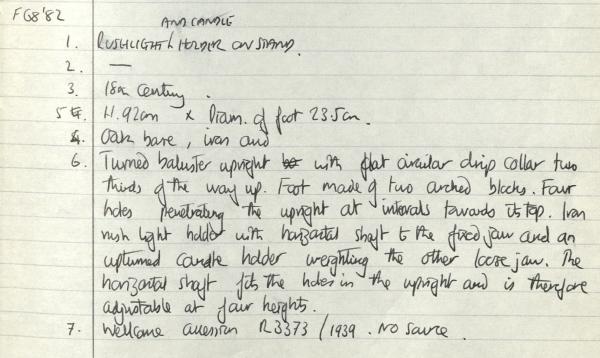 FG8'82
AND CANDLE
1. RUSHLIGHT HOLDER ON STAND.
2. —
3. 18th Century.
5 4. H. 92cm x Diam. of foot 23.5cm.
4. Oak base, iron and
6. Turned baluster upright with flat circular drip collar two
thirds of the way up. Foot made of two arched blocks. Four
holes penetrating the upright at intervals towards its top. Iron
rush light holder with horizontal shaft to the fixed jaw and an
upturned candle holder weighting the other loose jaw. The
horizontal shaft fits the holes in the upright and is therefore
adjustable at four heights.
7. Wellcome accession R3373/1939. No source.